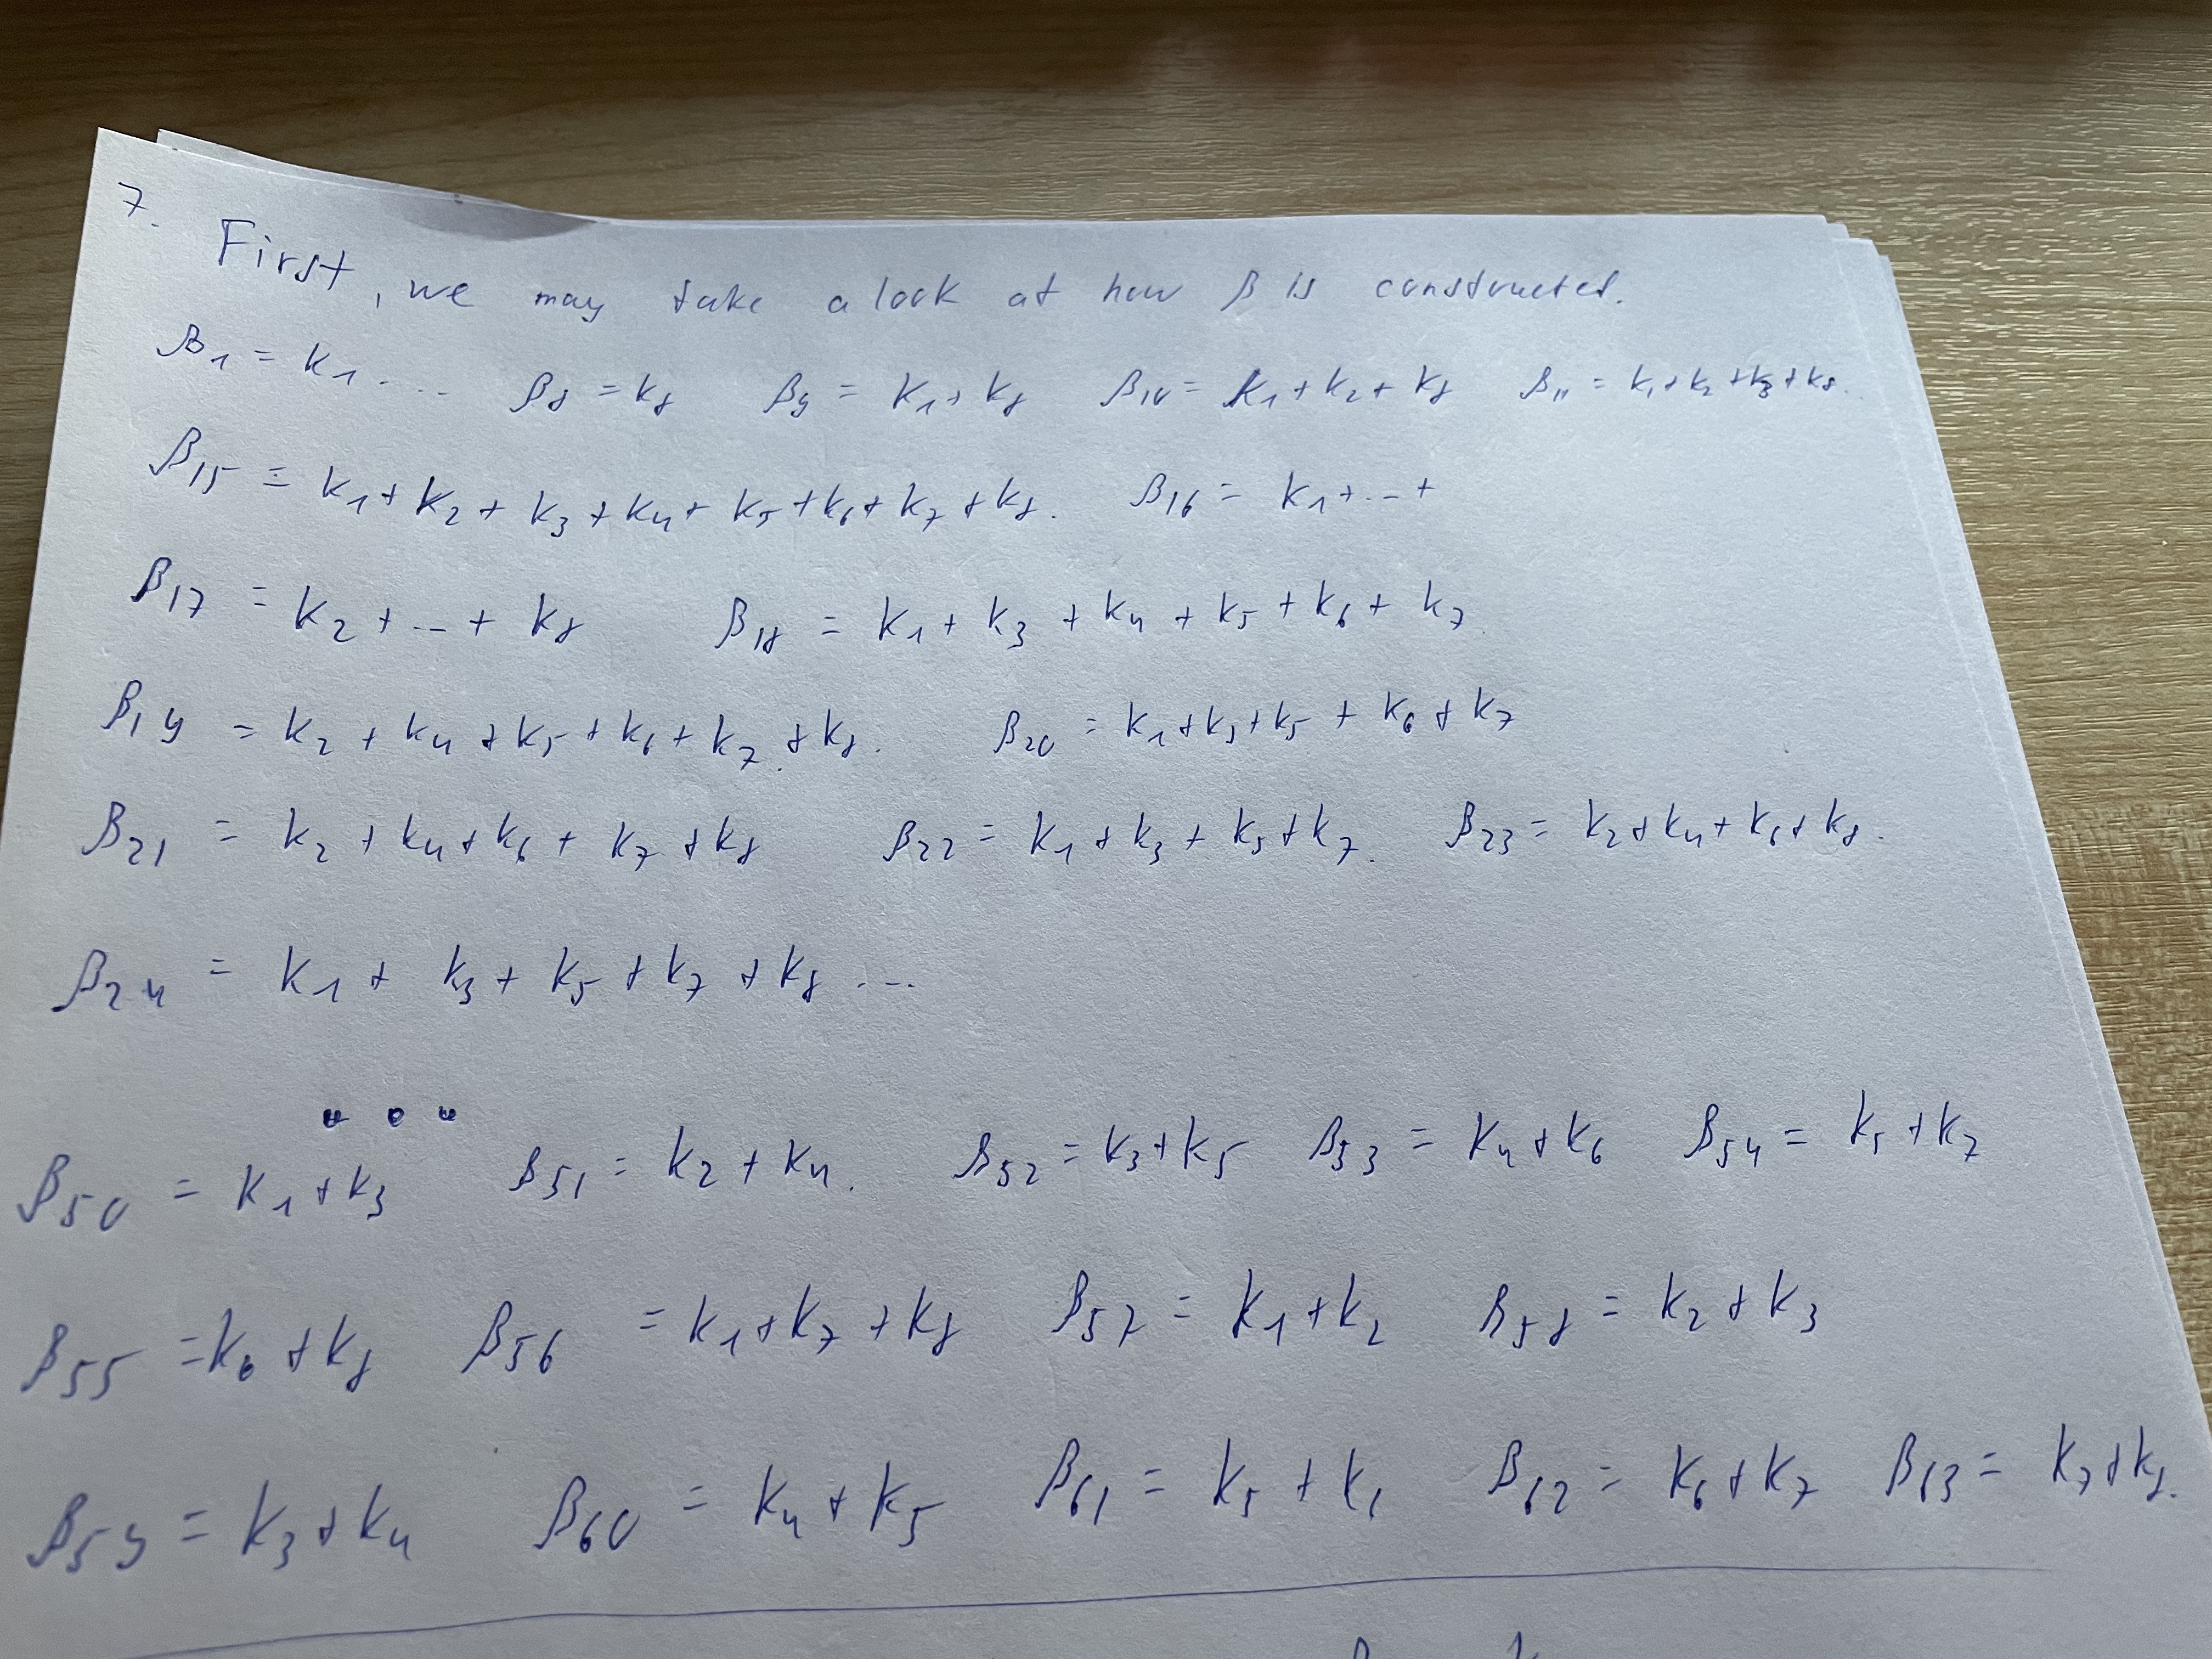 7.
First, we may take a look at how β is constructed.
β₁ = k₁ ... β₈ = k₈ β₉ = k₁ + k₈ β₁₀ = k₁ + k₂ + k₈ β₁₁ = k₁ + k₂ + k₃ + k₈..
β₁₅ = k₁ + k₂ + k₃ + k₄ + k₅ + k₆ + k₇ + k₈. β₁₆ = k₁ + ... +
β₁₇ = k₂ + ... + k₈ β₁₈ = k₁ + k₃ + k₄ + k₅ + k₆ + k₇.
β₁₉ = k₂ + k₄ + k₅ + k₆ + k₇ + k₈. β₂₀ = k₁ + k₃ + k₅ + k₆ + k₇
β₂₁ = k₂ + k₄ + k₆ + k₇ + k₈ β₂₂ = k₁ + k₃ + k₅ + k₇. β₂₃ = k₂ + k₄ + k₆ + k₈.
β₂₄ = k₁ + k₃ + k₅ + k₇ + k₈ ...
...
β₅₀ = k₁ + k₃ β₅₁ = k₂ + k₄. β₅₂ = k₃ + k₅ β₅₃ = k₄ + k₆ β₅₄ = k₅ + k₇
β₅₅ = k₆ + k₈ β₅₆ = k₁ + k₇ + k₈ β₅₇ = k₁ + k₂ β₅₈ = k₂ + k₃
β₅₉ = k₃ + k₄ β₆₀ = k₄ + k₅ β₆₁ = k₅ + k₆ β₆₂ = k₆ + k₇ β₆₃ = k₇ + k₈.